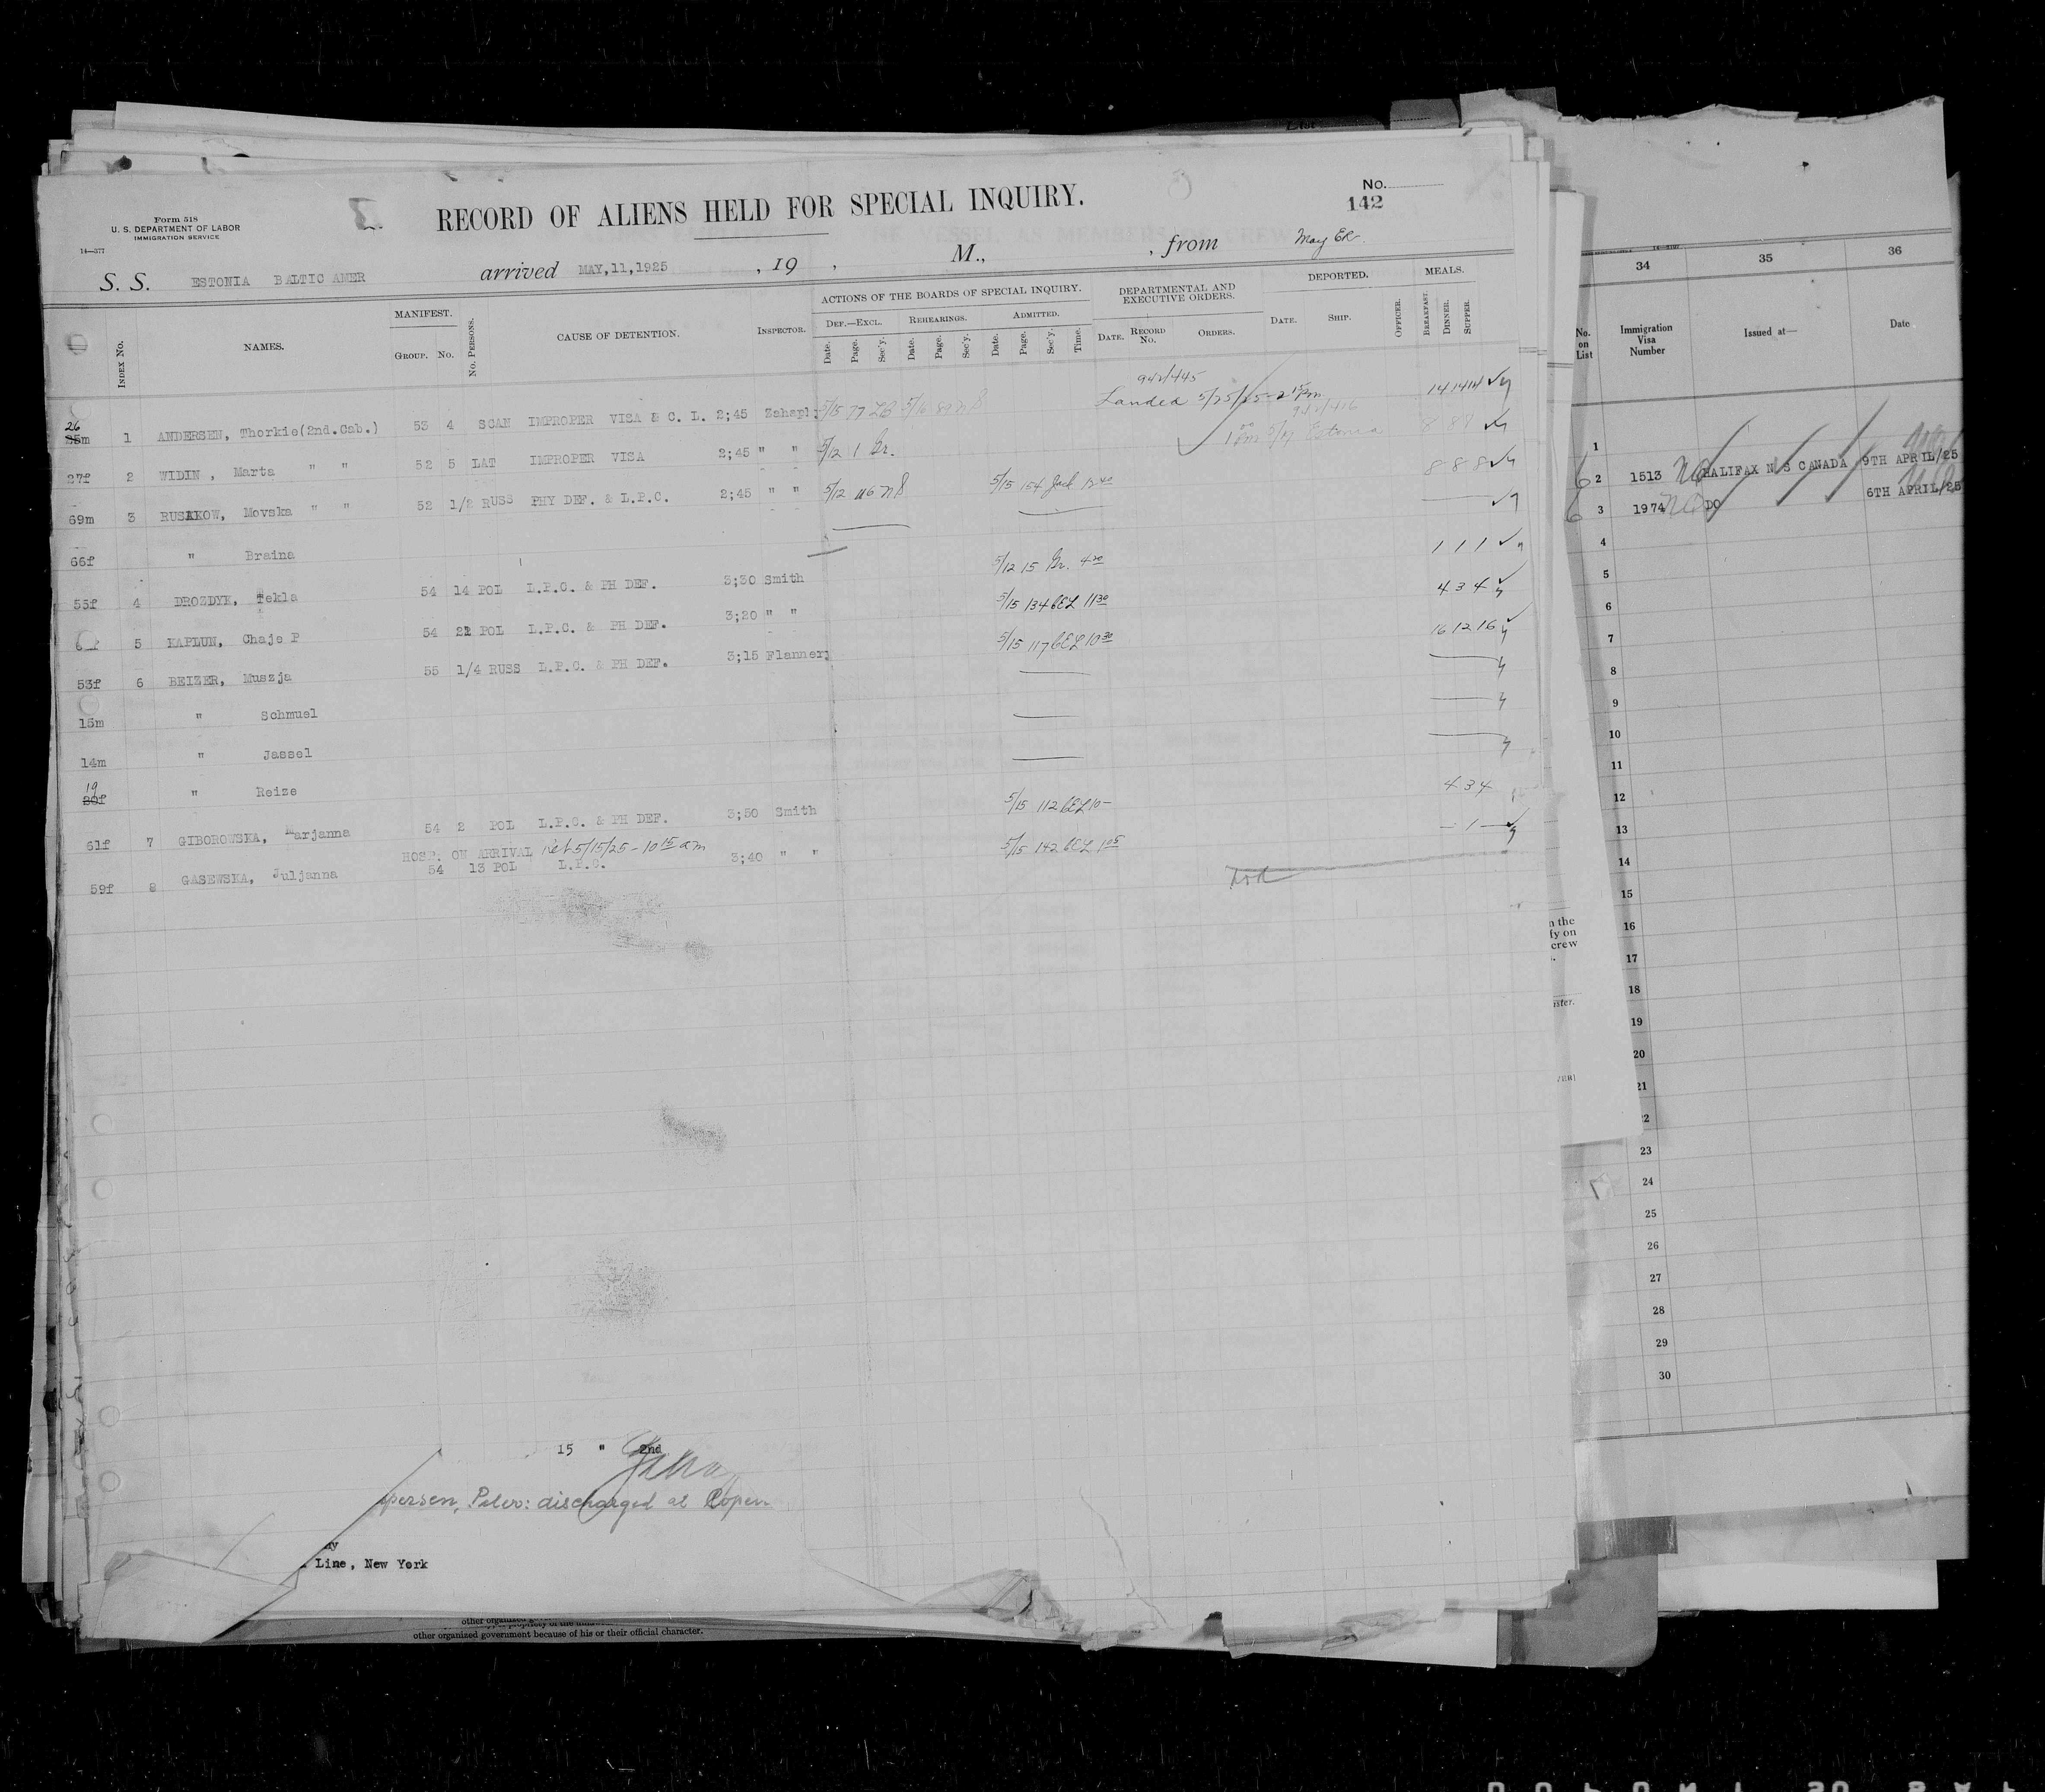 Form 518
U. S. DEPARTMENT OF LABOR
IMMIGRATION SERVICE
14—377
RECORD OF ALIENS HELD FOR SPECIAL INQUIRY.
No.
142
S. S. ESTONIA BALTIC AMER arrived MAY,11,1925 , 19 , M., , from
ACTIONS OF THE BOARDS OF SPECIAL INQUIRY. DEPARTMENTAL AND EXECUTIVE ORDERS. DEPORTED. MEALS.
INDEX No. NAMES. MANIFEST. GROUP. No. No. PERSONS. CAUSE OF DETENTION. INSPECTOR. DEF.—EXCL. Date. Page. Sec'y. REHEARINGS. Date. Page. Sec'y. ADMITTED. Date. Page. Sec'y. Time. DATE. RECORD No. ORDERS. DATE. SHIP. OFFICER. BREAKFAST. DINNER. SUPPER.
942/445
26 1 ANDERSEN, Thorkie(2nd.Cab.) 53 4 SCAN IMPROPER VISA & C. L. 2;45 5/15 77 Landed 5/25/25-2 15 Pm 14 14 14
27f 2 WIDIN , Marta " " 52 5 LAT IMPROPER VISA 2;45 " " 5/12 1 Br. Estonia 8 8 8
69m 3 RUSAKOW, Movska " " 52 1/2 RUSS PHY DEF. & L.P.C. 2;45 " " 5/12 5/15 154 8 8 8
66f " Braina
55f 4 DROZDYK, Tekla 54 14 POL L.P.C. & PH DEF. 3;30 Smith 5/12 15 Br. 4 20 1 1 1
5 KAPLUN, Chaje P 54 POL L.P.C. & PH DEF. 3;20 " " 5/15 134 CEL 11 30 4 3 4
53f 6 BEIZER, Muszja 55 1/4 RUSS L.P.C. & PH DEF. 3;15 Flannery 5/15 117 CEL 10 30 16 12 16
15m " Schmuel
14m " Jassel
19 20f " Reize
61f 7 GIBOROWSKA, Marjanna 54 2 POL L.P.C. & PH DEF. 3;50 Smith 5/15 112 CEL 10— 4 3 4
HOSP. ON ARRIVAL 5/15/25-10 15 am
59f 8 GASEWSKA, Juljanna 54 13 POL L.P.C. 3;40 " " 5/15 142 CEL 1 05 — 1 —
15 " 2nd
discharged at Copen
Line, New York
other organized government because of his or their official character.
34 35 36
No. on List Immigration Visa Number Issued at— Date
1
2 1513 HALIFAX N S CANADA 9TH APRIL/25
3 1974 DO 6TH APRIL/25
4
5
6
7
8
9
10
11
12
13
14
15
16
17
18
19
20
21
22
23
24
25
26
27
28
29
30